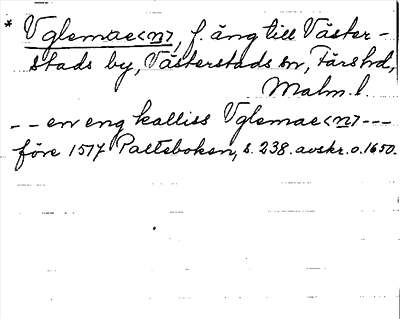 * Vglemae<n>, f. äng till Väster-
stads by, Västerstads sn, Färs hd,
Malm. l.
-- en eng kalliss Vglemae<n> ---
före 1517 Palteboken, s. 238. avskr. o. 1650.